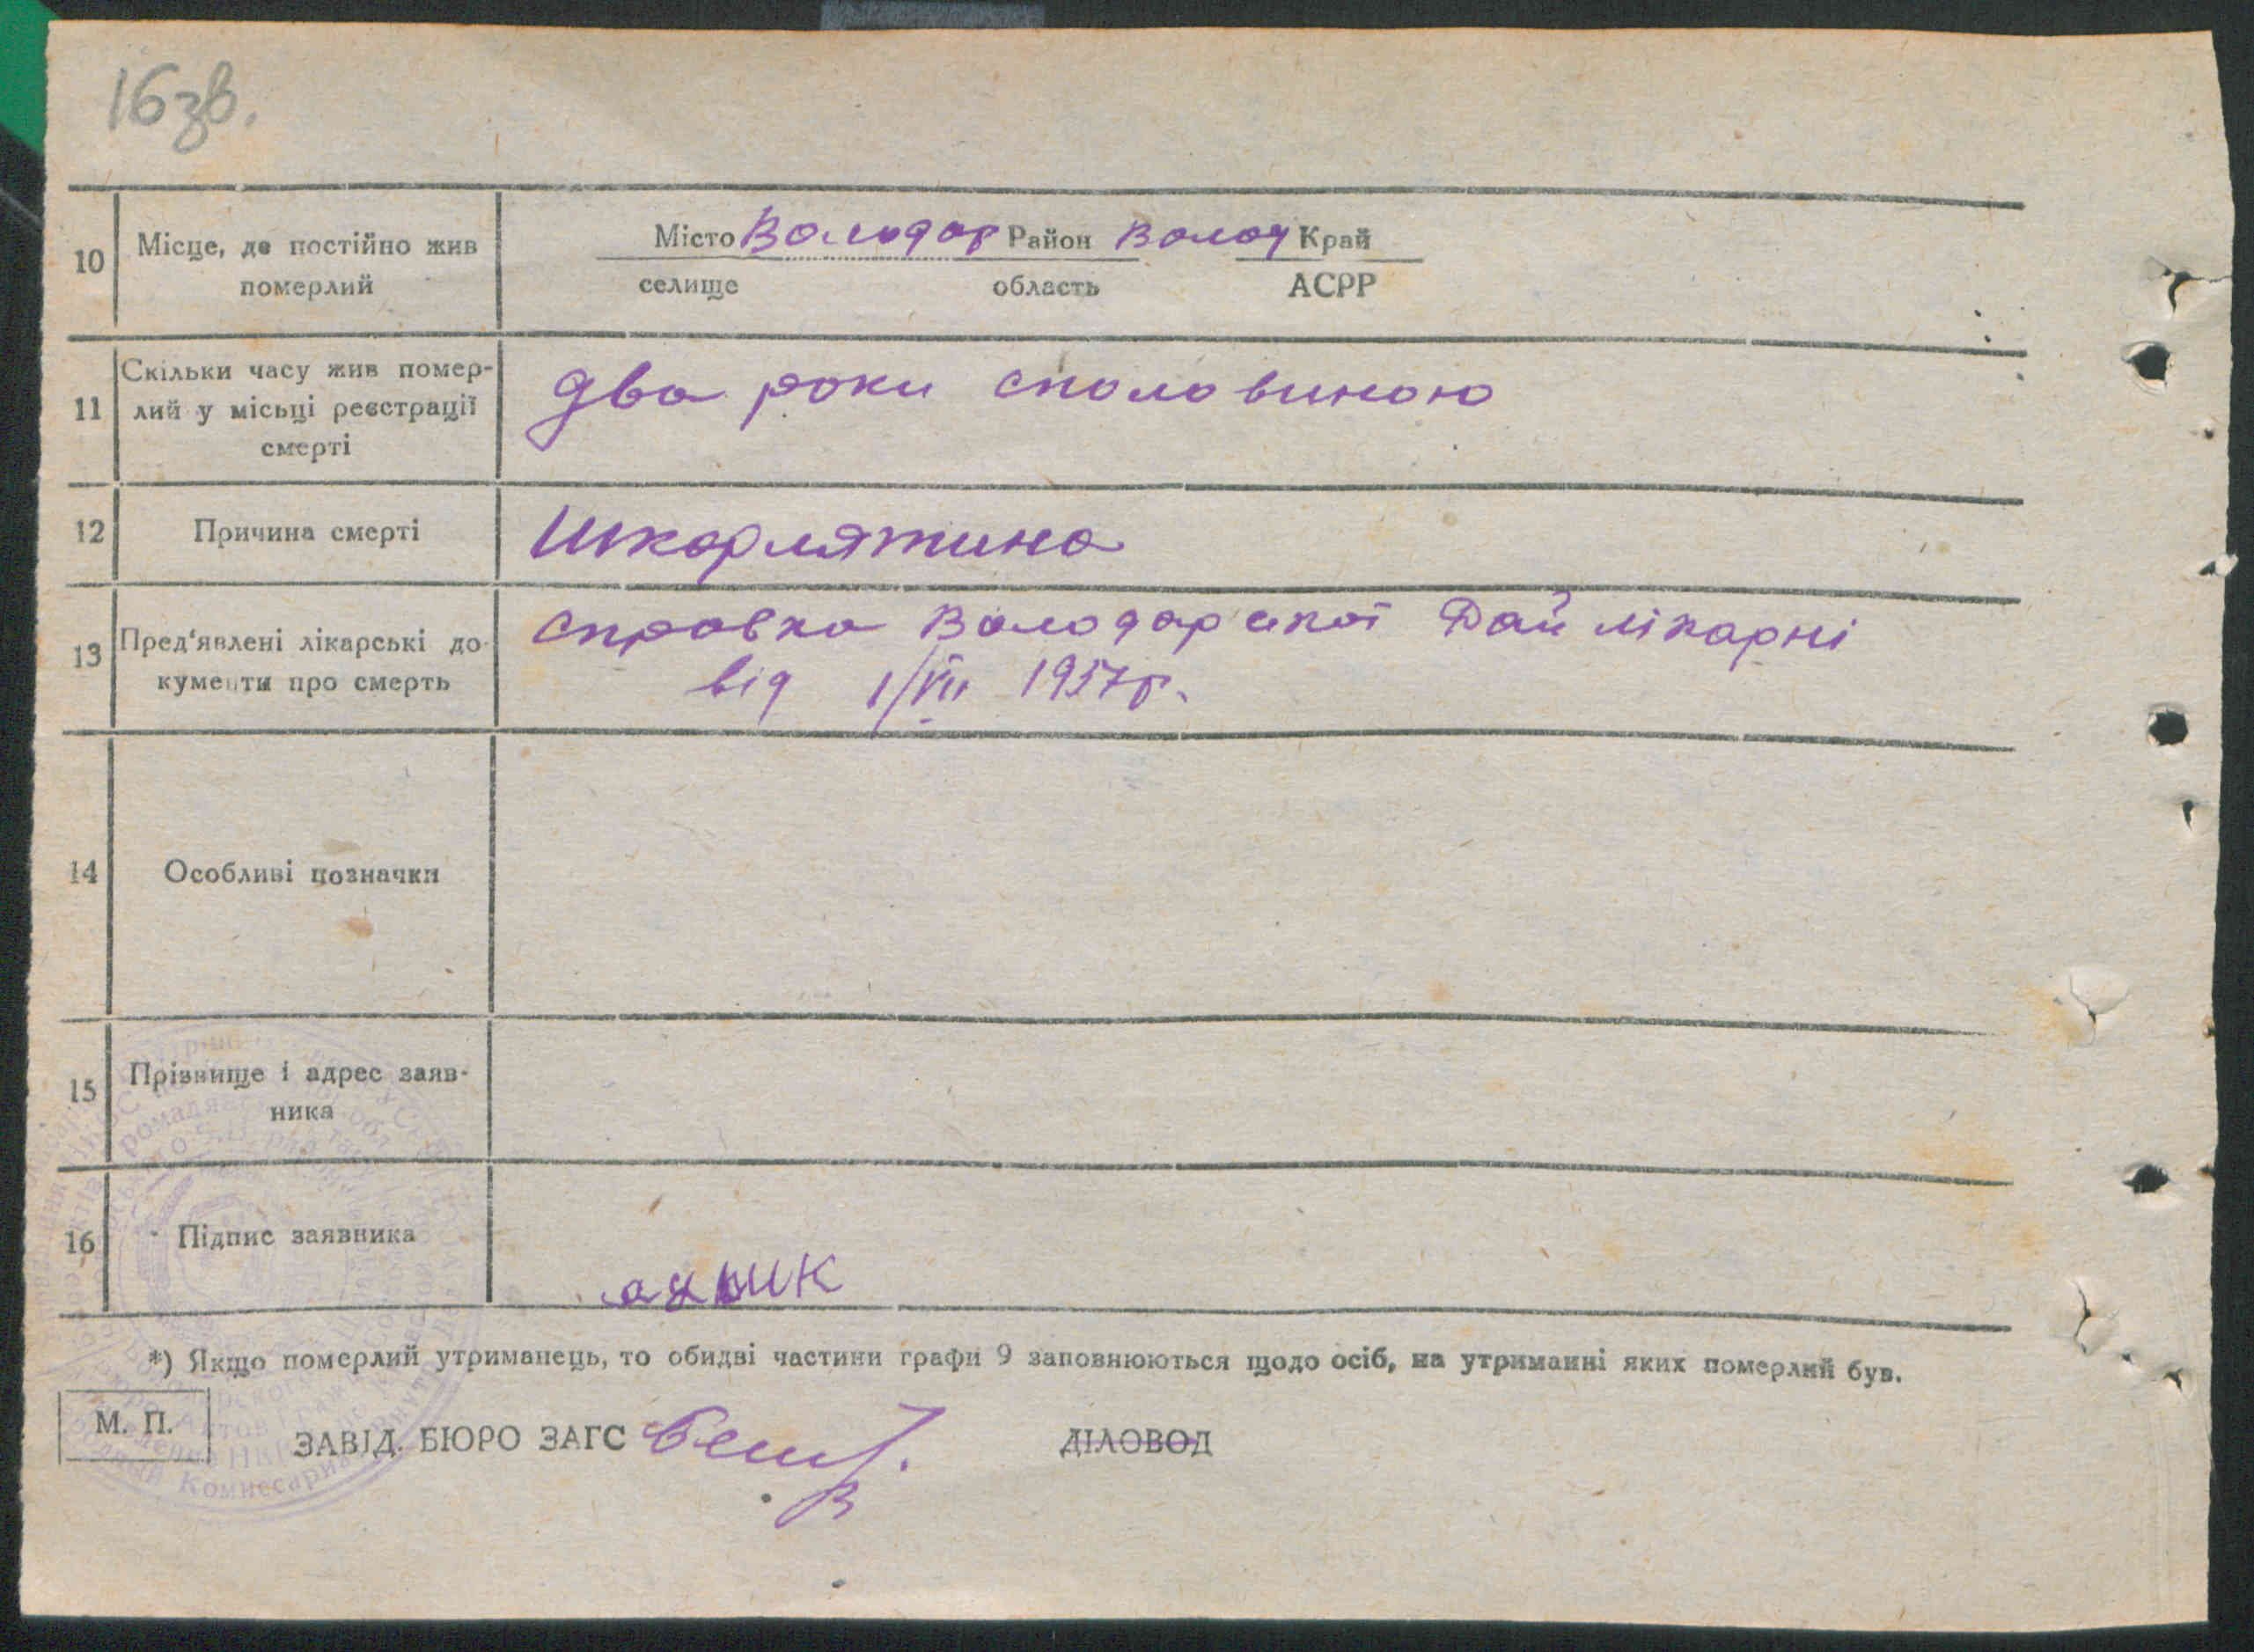 16 зв.
10 Місце, де постійно жив померлий
Місто Володар Район Волод Край
селище область АСРР
11 Скільки часу жив помер-
лий у місьці реєстрації
смерті
два роки споловиною
12 Причина смерті
Шкарлятина
13 Пред'явлені лікарські до-
кументи про смерть
справка Володарської Райлікарні
від 1/VII 1937р.
14 Особливі позначки
15 Прізвище і адрес заяв-
ника
16 Підпис заявника
*) Якщо померлий утриманець, то обидві частини графи 9 заповнюються щодо осіб, на утриманні яких померлий був.
М. П.
ЗАВІД. БЮРО ЗАГС
ДІЛОВОД